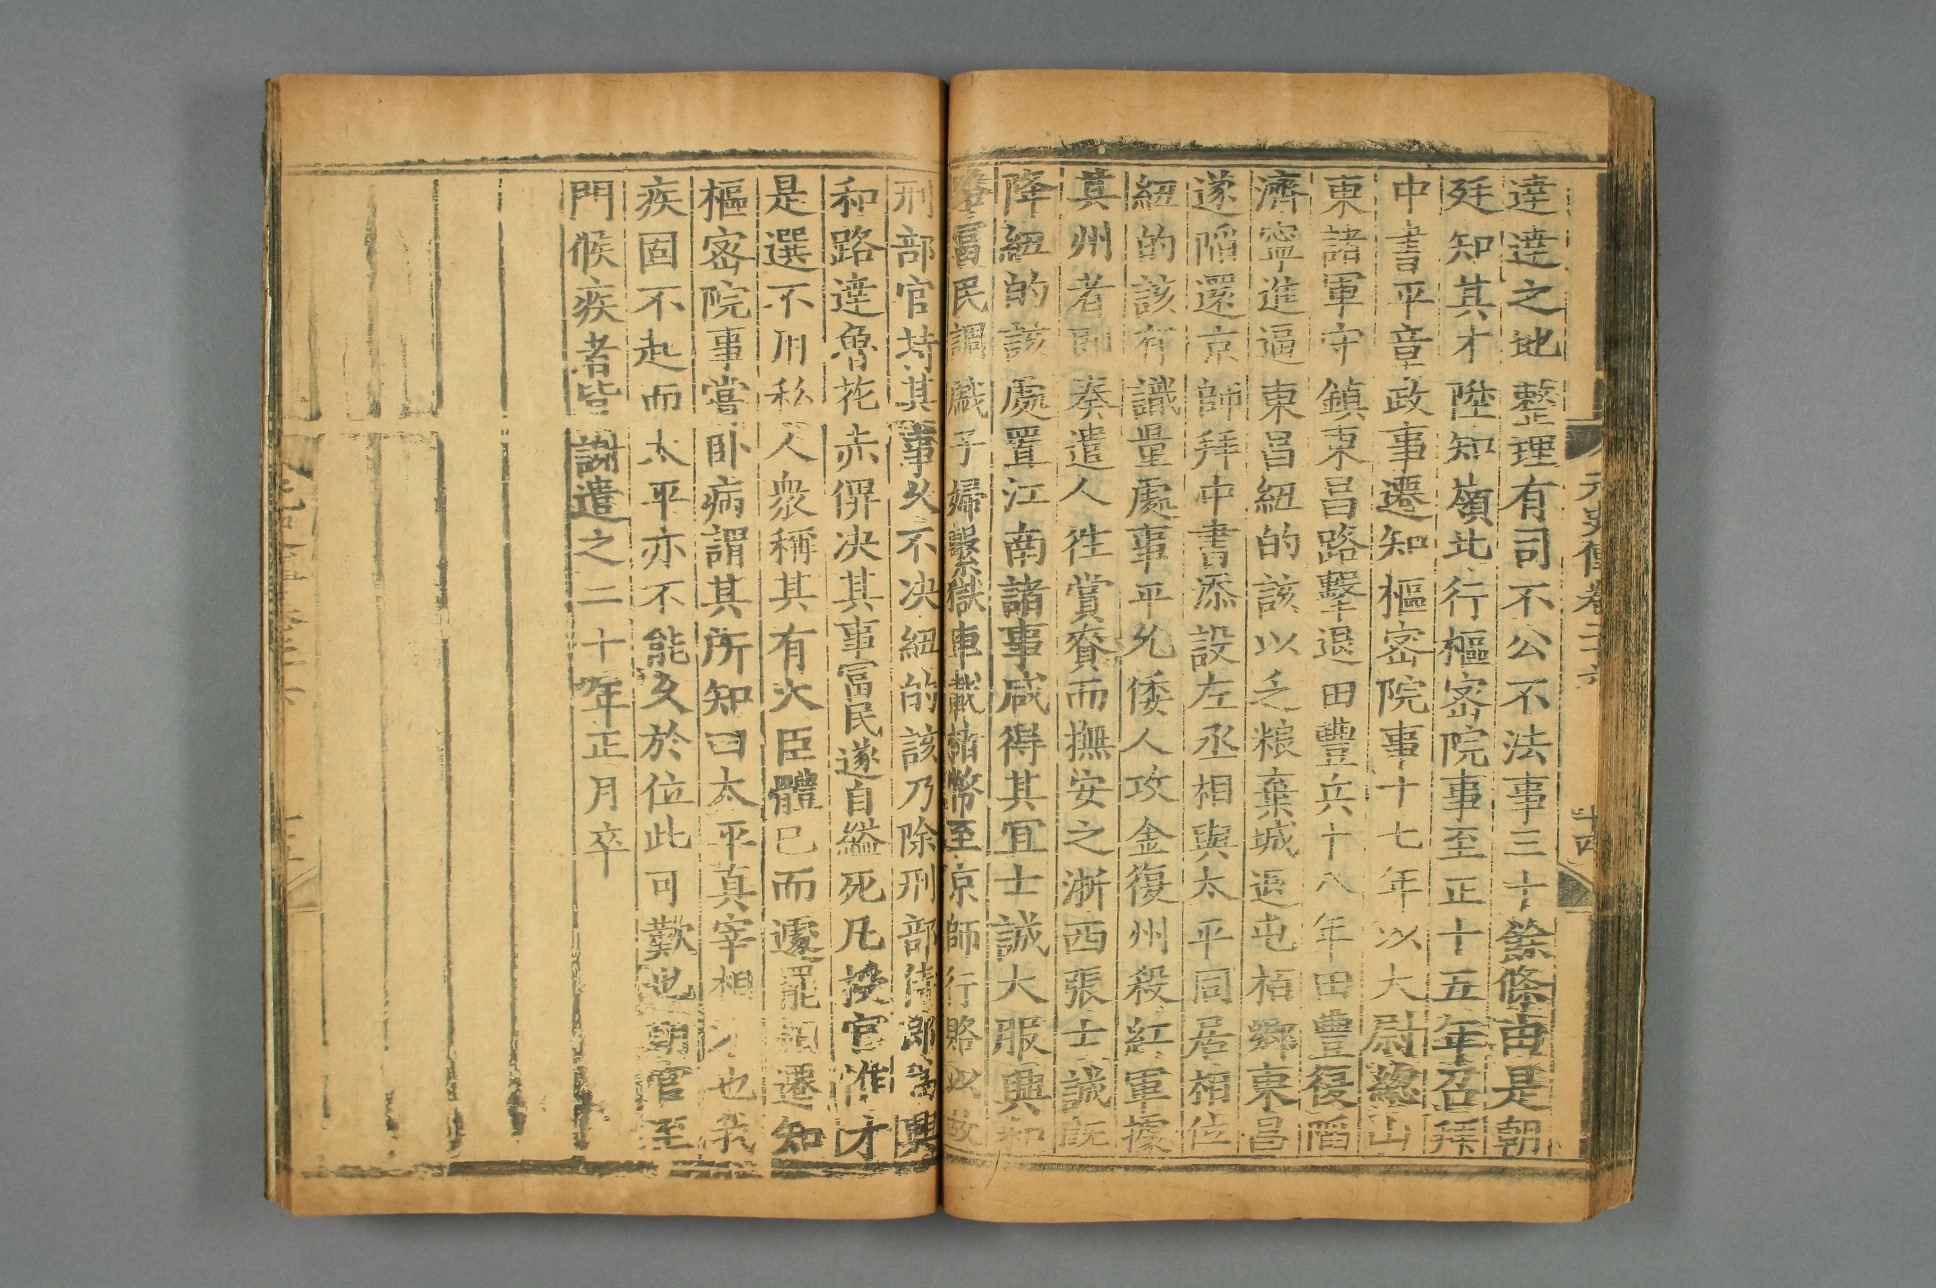 元史傳卷二十六
十四
達達之地整理有司不公不法事三十餘條由是朝
廷知其才陞知嶺北行樞密院事至正十五年召拜
中書平章政事遷知樞密院事十七年以大尉總山
東諸軍守鎮東昌路擊退田豐兵十八年田豐復陷
濟寧進逼東昌紐的該以乏粮棄城退屯栢鄉東昌
遂陷還京師拜中書添設左丞相與太平同居相位
紐的該有識量處事平允倭人攻金復州殺紅軍據
其州者即奏遣人徃賞賚而撫安之浙西張士誠既
降紐的該處置江南諸事咸得其宜士誠大服興和
路富民調戲子婦繫獄車載楮幣至京師行賂以故
刑部官持其事久不决紐的該乃除刑部侍郎為興
和路達魯花赤俾决其事富民遂自縊死凡授官惟才
是選不用私人衆稱其有大臣體已而遽罷相遷知
樞密院事嘗卧病謂其所知曰太平真宰相才也我
疾固不起而太平亦不能久於位此可歎也朝官至
門候疾者皆謝遣之二十年正月卒